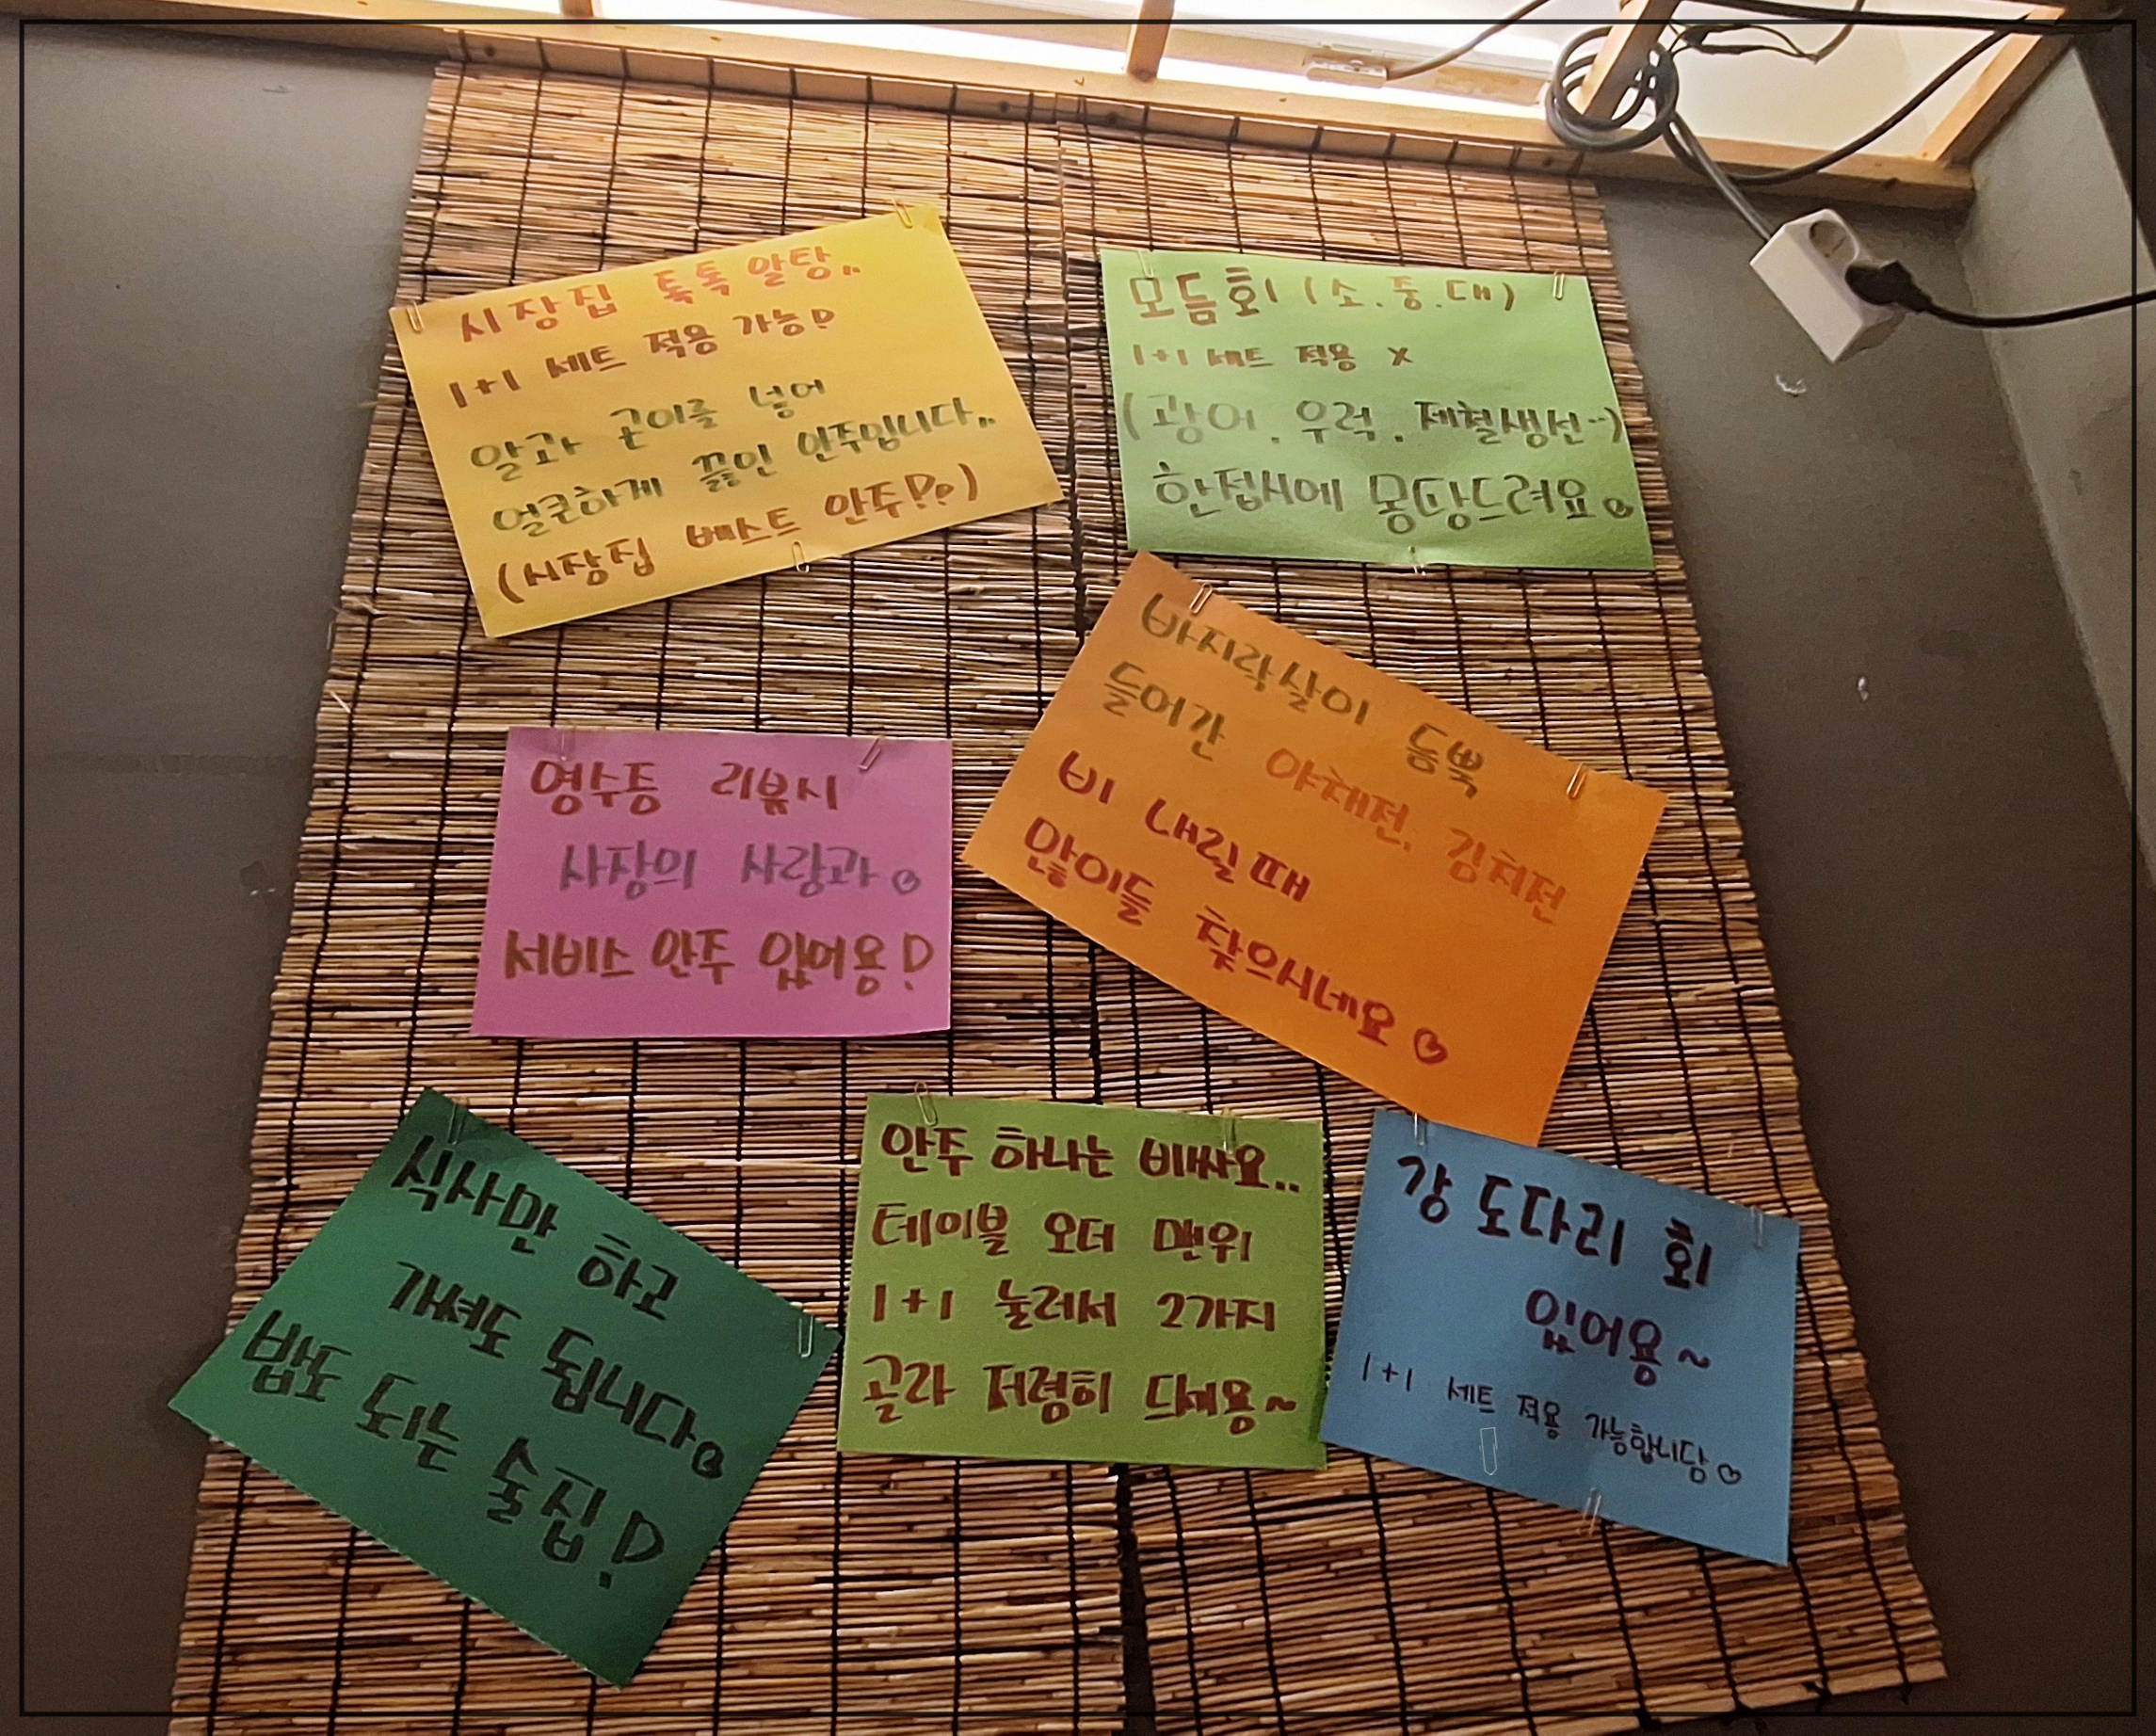 시장집 톡톡 알탕..
1+1 세트 적용 가능!
알과 곤이를 넣어
얼큰하게 끓인 안주입니다..
(시장집 베스트 안주!?)
모듬회 (소.중.대)
1+1 세트 적용 x
(광어. 우럭. 제철생선··)
한접시에 몽땅드려요♡
바지락살이 듬뿍
들어간 야채전. 김치전
비 내릴때
많이들 찾으시네요♡
영수증 리뷰시
사장의 사랑과♡
서비스 안주 있어용!
식사만 하고
가셔도 됩니다♡
밥도 되는 술집!
안주 하나는 비싸요..
테이블 오더 맨위
1+1 눌러서 2가지
골라 저렴히 드세용~
강도다리 회
있어용~
1+1 세트 적용 가능합니담♡